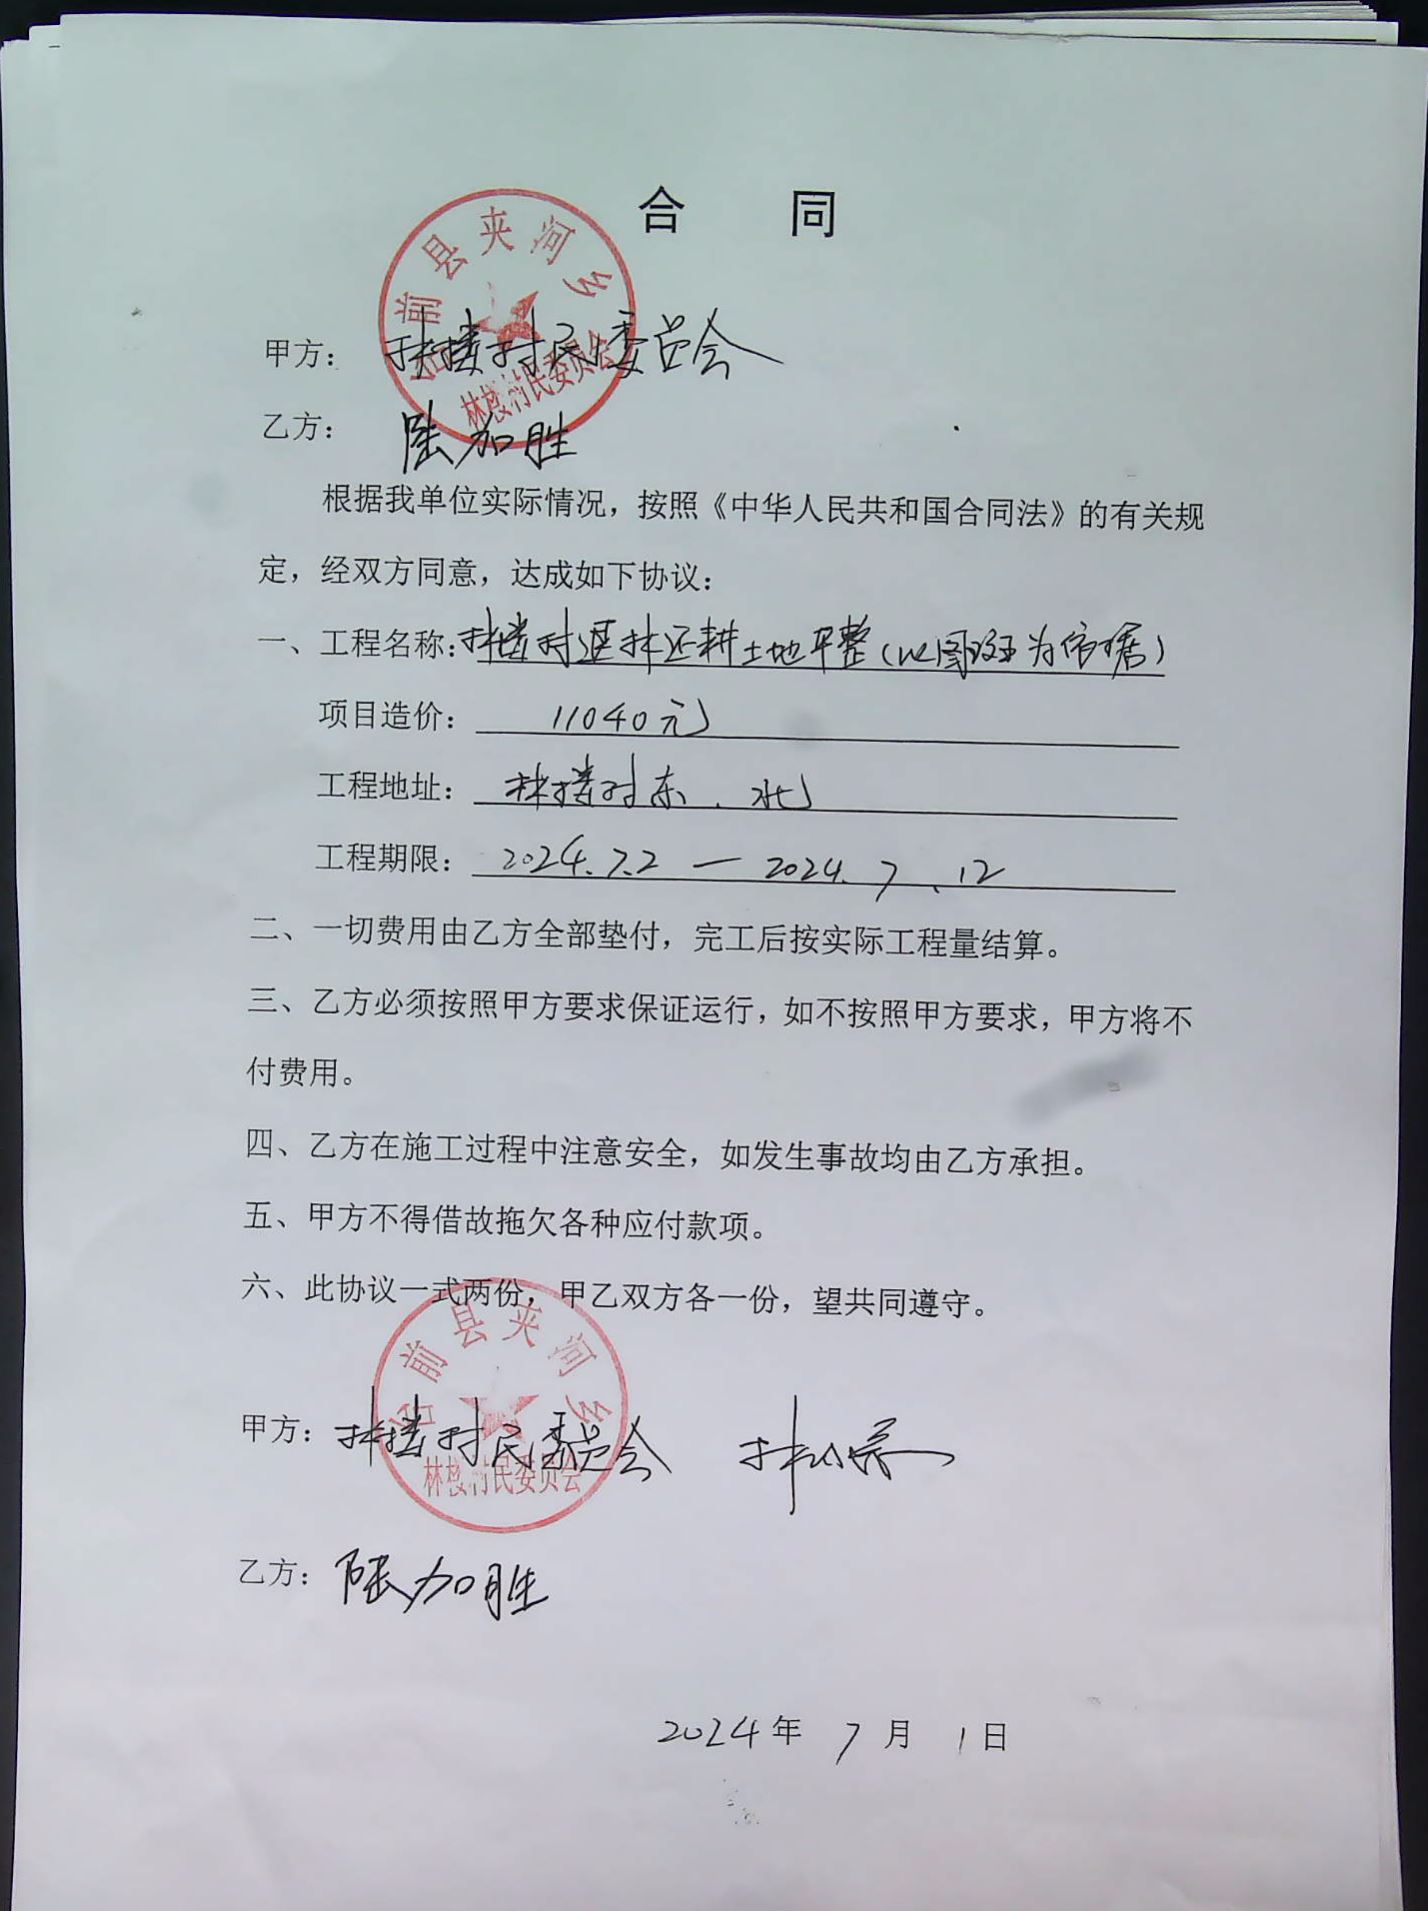 合 同
台前县夹河乡
林楼村民委员会
甲方：林楼村民委员会
乙方：陆加胜
根据我单位实际情况，按照《中华人民共和国合同法》的有关规
定，经双方同意，达成如下协议：
一、工程名称：林楼村退林还耕土地平整（以图斑为依据）
项目造价：11040元
工程地址：林楼村东、北
工程期限：2024.7.2 — 2024.7.12
二、一切费用由乙方全部垫付，完工后按实际工程量结算。
三、乙方必须按照甲方要求保证运行，如不按照甲方要求，甲方将不
付费用。
四、乙方在施工过程中注意安全，如发生事故均由乙方承担。
五、甲方不得借故拖欠各种应付款项。
六、此协议一式两份，甲乙双方各一份，望共同遵守。
台前县夹河乡
甲方：林楼村民委员会
林楼村民委员会
乙方：陆加胜
2024年 7月 1日